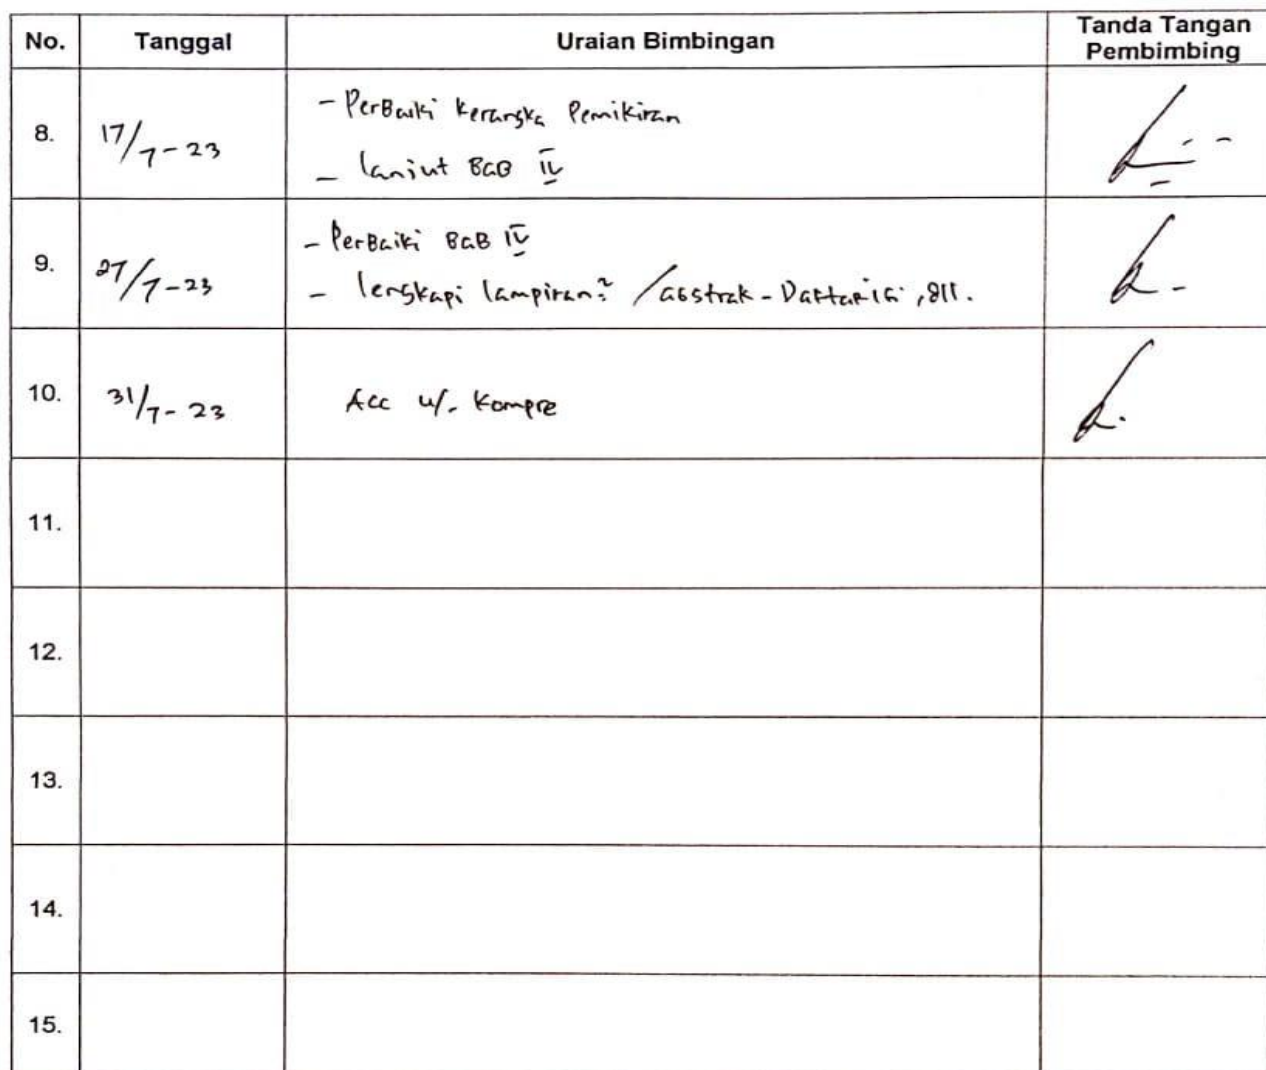 No. Tanggal Uraian Bimbingan Tanda Tangan Pembimbing
8. 17/7-23 - PerBaiki Kerangka Pemikiran
- lanjut BAB IV
9. 27/7-23 - PerBaiki BAB IV
- lengkapi lampiran² /abstrak - Daftar isi, dll.
10. 31/7-23 Acc u/. Kompre
11.
12.
13.
14.
15.